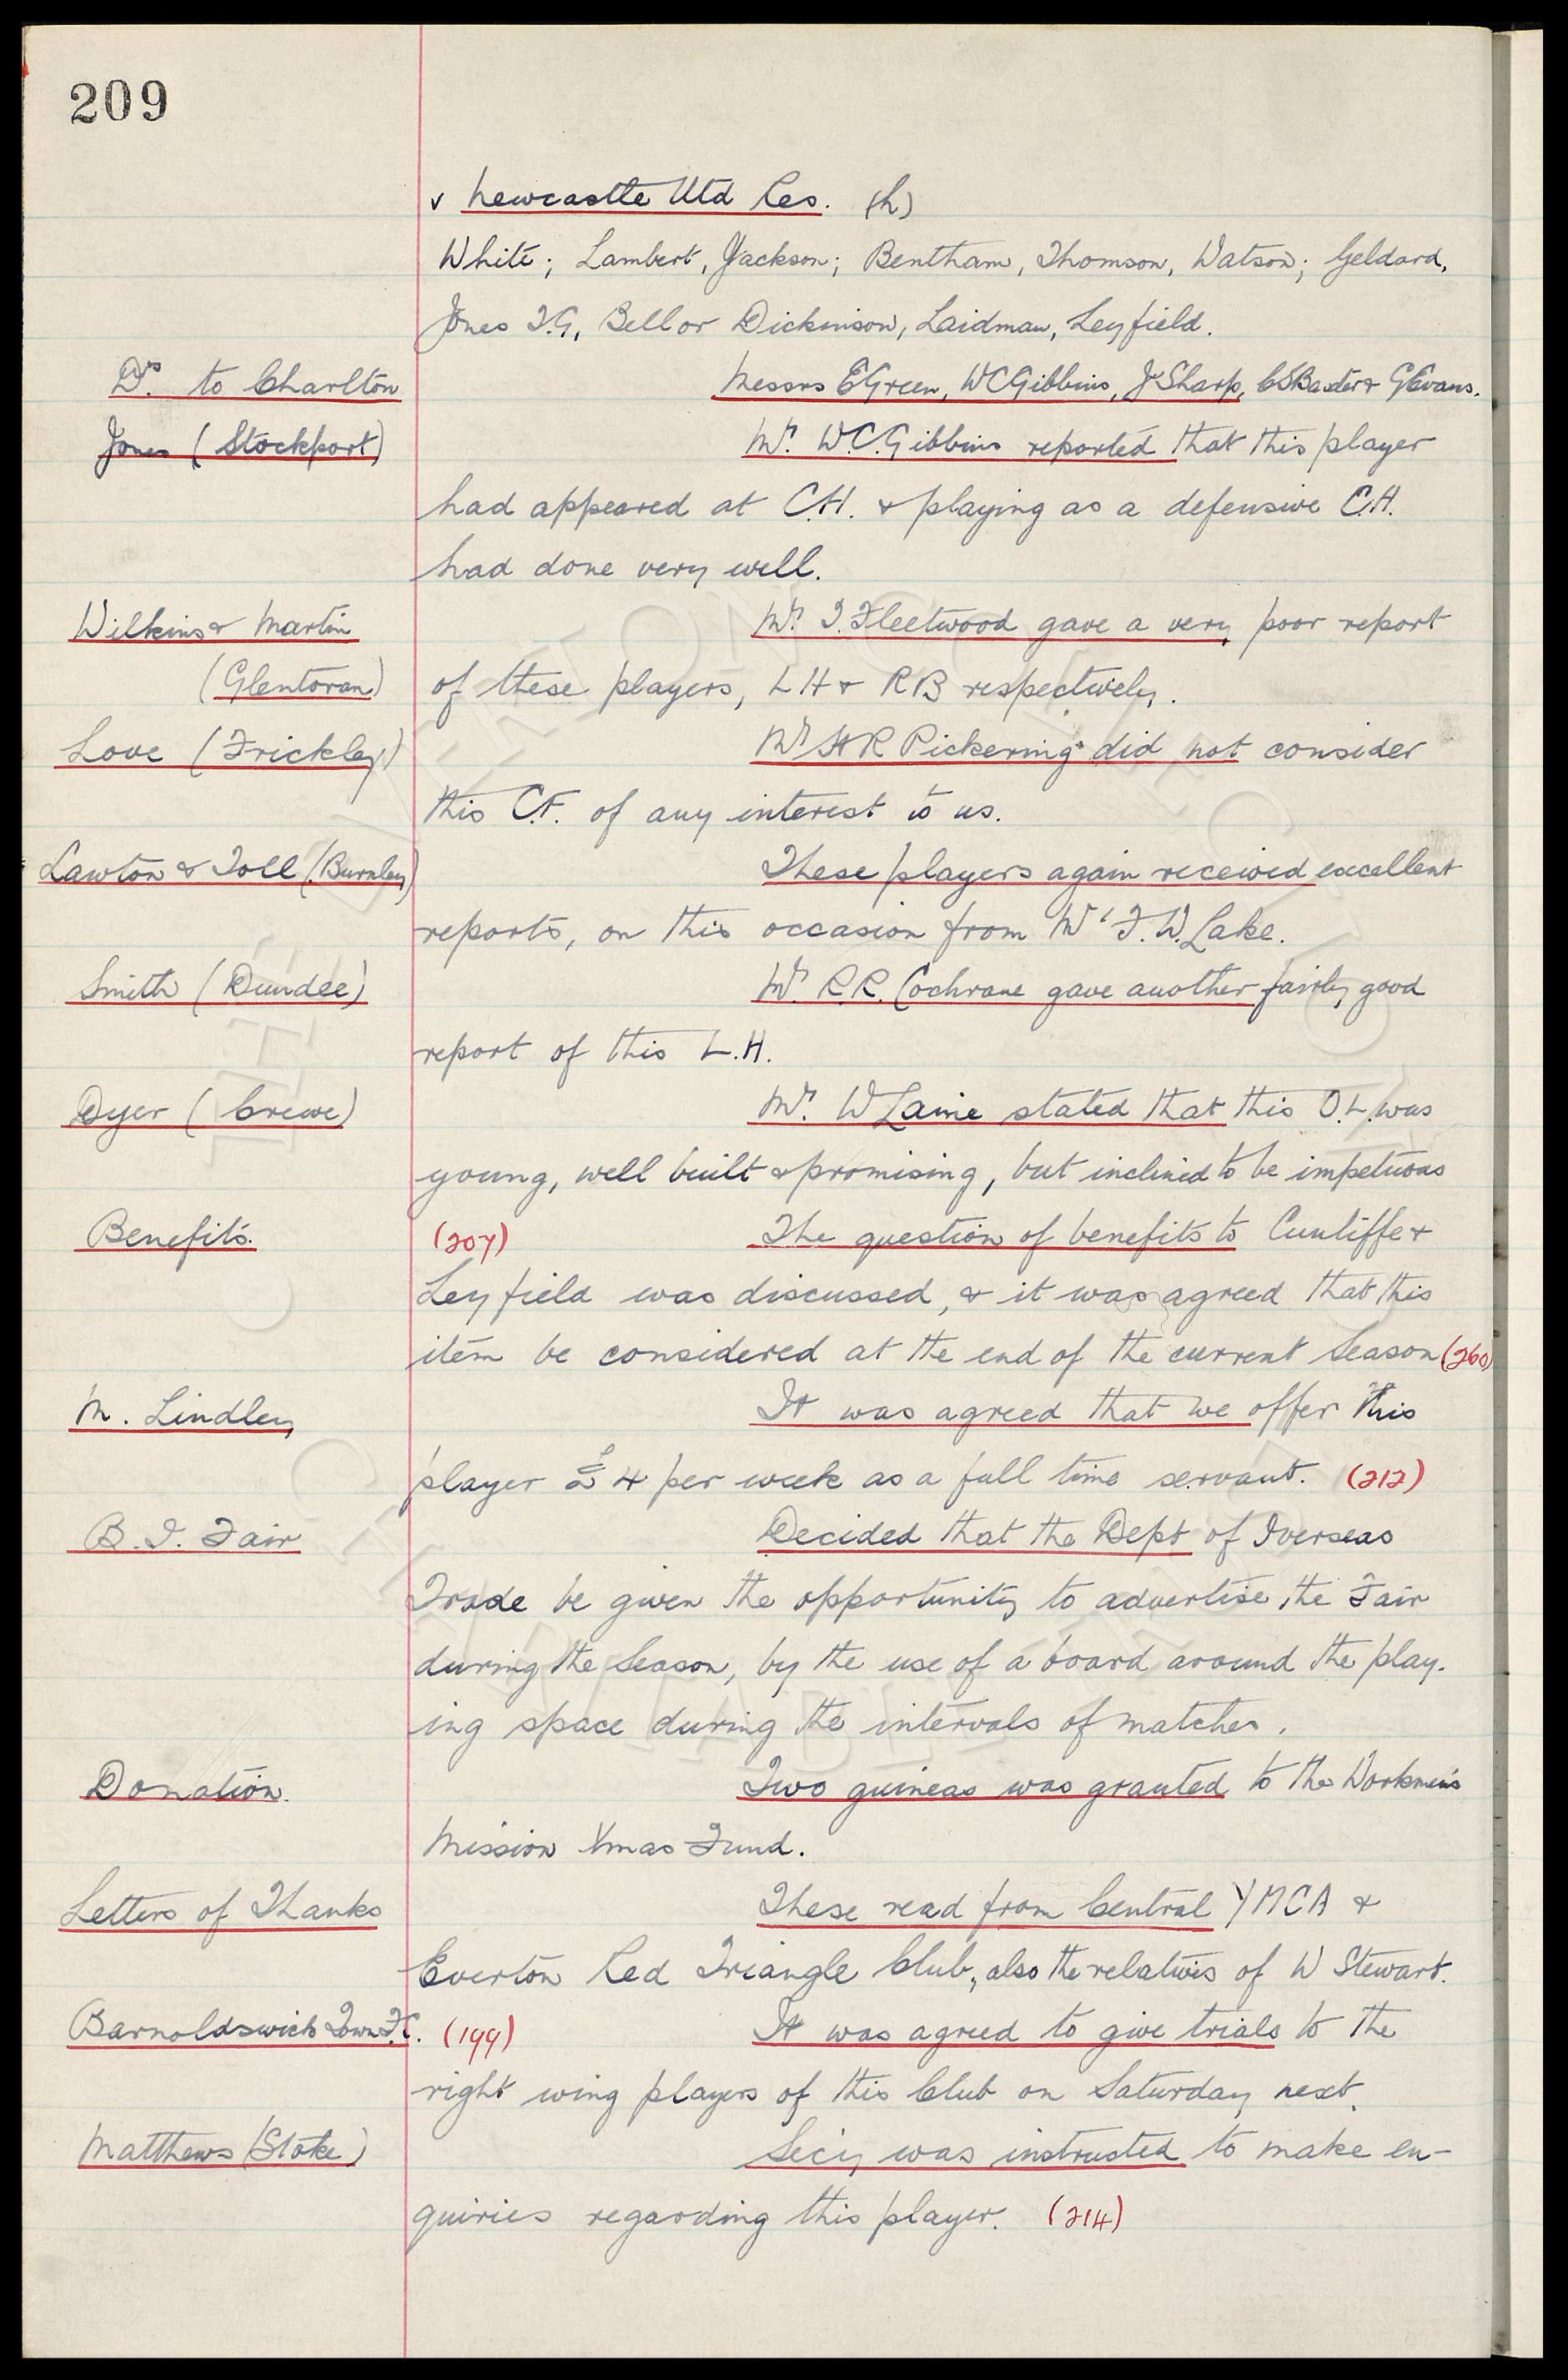 209
v Newcastle Utd Res. (h)
White; Lambert, Jackson; Bentham, Thomson, Watson; Geldard,
Jones T.G, Bell or Dickinson, Laidman, Leyfield.
Drs. to Charlton Messrs E Green, W C Gibbins, J Sharp, C S Baxter & G Evans.
Jones (Stockport) Mr. W.C. Gibbins reported that this player
had appeared at C.H. & playing as a defensive C.H.
had done very well.
Wilkins & Martin Mr. T. Fleetwood gave a very poor report
(Glentoran) of these players, L H & R B respectively.
Love (Frickley) Mr. H R Pickering did not consider
this C.F. of any interest to us.
Lawton & Toll (Burnley) These players again received excellent
reports, on this occasion from Mr F.W. Lake.
Smith (Dundee) Mr. R.R. Cochrane gave another fairly good
report of this L.H.
Dyer (Crewe) Mr. W Laine stated that this O.L. was
young, well built & promising, but inclined to be impetuous
Benefits. (207) The question of benefits to Cunliffe &
Leyfield was discussed, & it was agreed that this
item be considered at the end of the current Season (260)
M. Lindley It was agreed that we offer this
player £4 per week as a full time servant. (212)
B. I. Fair Decided that the Dept of Overseas
Trade be given the opportunity to advertise the Fair
during the Season, by the use of a board around the play-
ing space during the intervals of matches.
Donation. Two guineas was granted to the Workmen's
Mission Xmas Fund.
Letters of Thanks These read from Central YMCA &
Everton Red Triangle Club, also the relatives of W Stewart.
Barnoldswick Town F.C. (199) It was agreed to give trials to the
right wing players of this Club on Saturday next.
Matthews (Stoke) Secy was instructed to make en-
quiries regarding this player. (214)